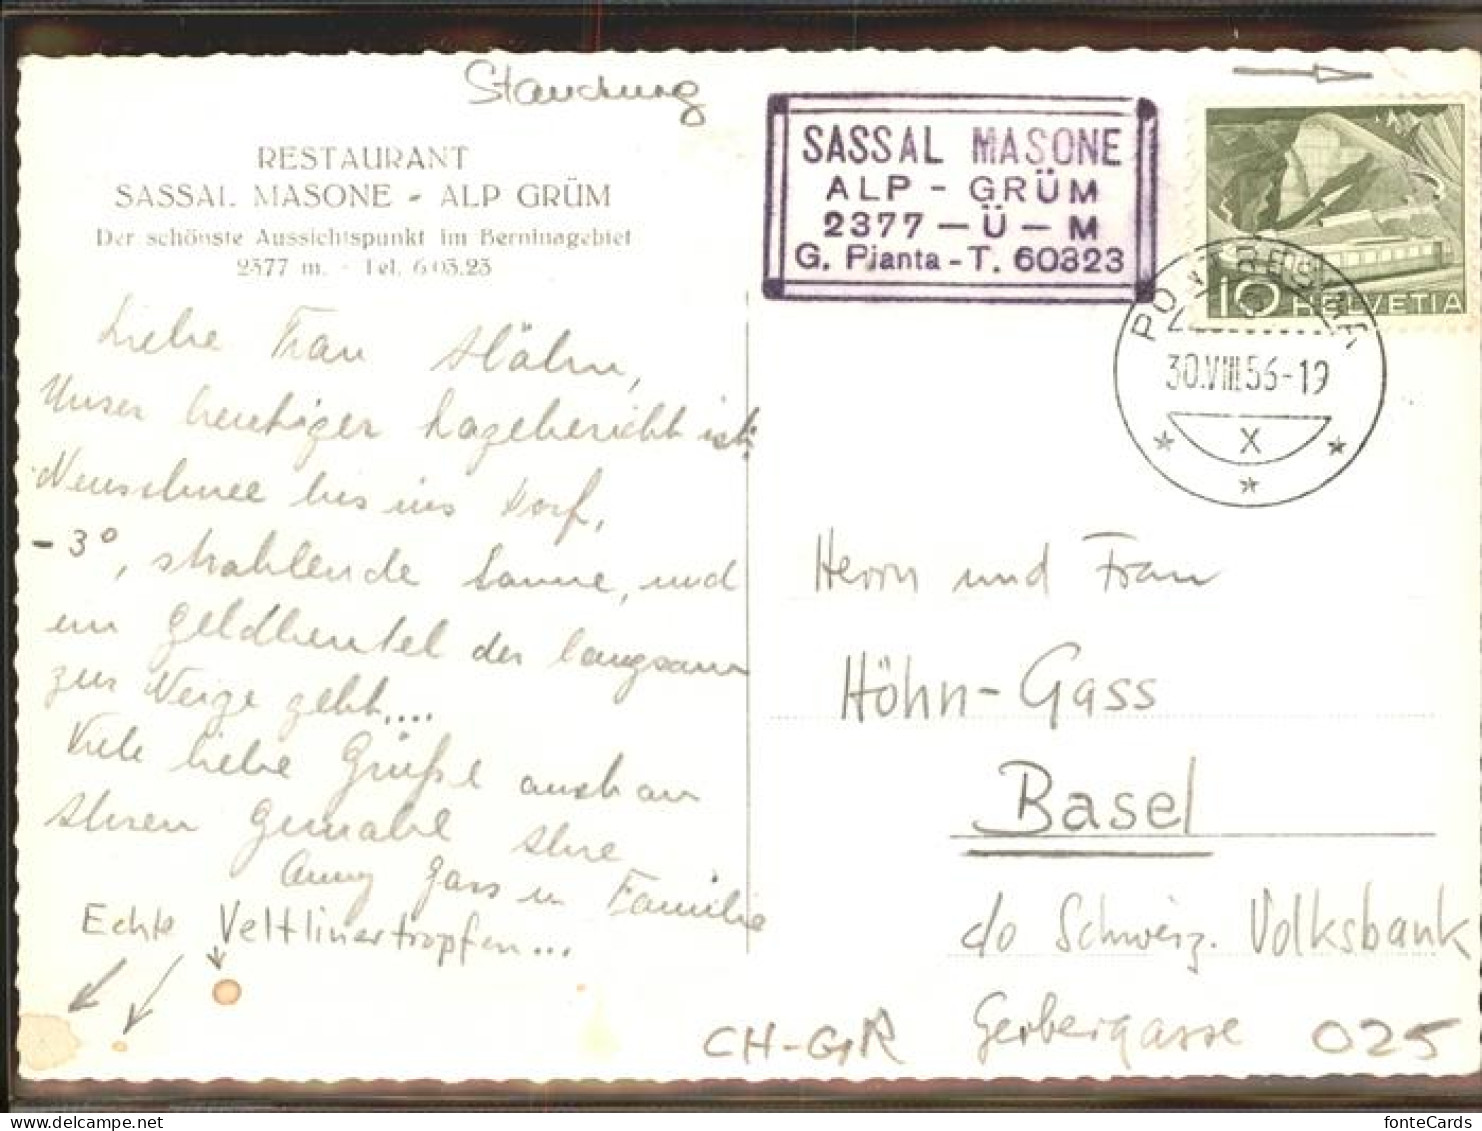 Stauchung
RESTAURANT
SASSAL MASONE - ALP GRÜM
Der schönste Aussichtspunkt im Berninagebiet
2377 m. - Tel. 6.03.23
Liebe Frau Höhn,
Unser heutiger Lagebericht ist:
Neuschnee bis ins Dorf,
-3°, strahlende Sonne, und
ein Geldbeutel der langsam
zur Neige geht....
Viele liebe Grüsse auch an
Ihren Gemahl Ihre
Anny Gass u Familie
Echte Veltlinertropfen...
SASSAL MASONE
ALP - GRÜM
2377 - Ü - M
G. Pianta - T. 60323
10 HELVETIA
PONTRESINA
30.VIII.56-19
X
Herrn und Frau
Höhn-Gass
Basel
c/o Schweiz. Volksbank
Gerbergasse
CH-GR
025
fonteCards